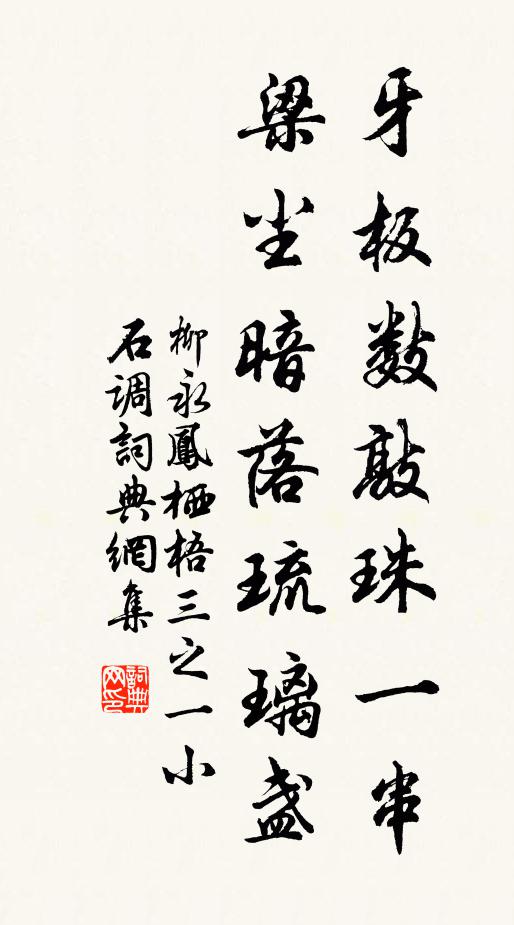 牙板数敲珠一串
梁尘暗落琉璃盏
柳永鳳栖梧三之一小
石调詞典網集
詞典网印